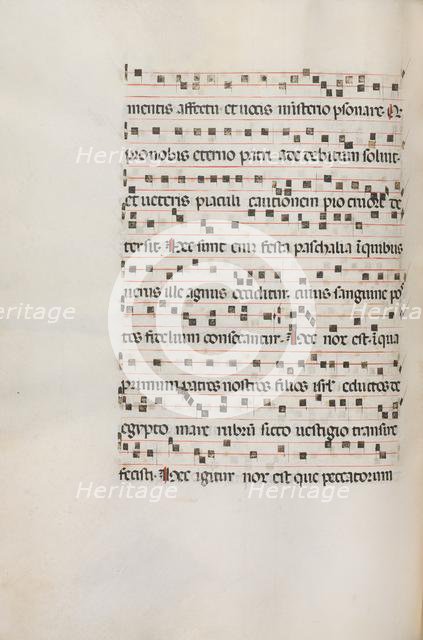 mentis affectu et vocis misterio psonare. Q
pro nobis eterno patri ade debitum soluit
et veteris piaculi cautionem pio cruore de
tersit. Hec sunt enim festa paschalia in quibus
verus ille agnus occiditur. cuius sanguine pos
tes fidelium consecrantur. Hec nox est in qua
primum patres nostros filios isrl eductos de
egypto. mare rubru sicco vestigio transire
fecisti. Hec igitur nox est que peccatorum
Heritage Heritage
Heritage Heritage
Heritage Heritage